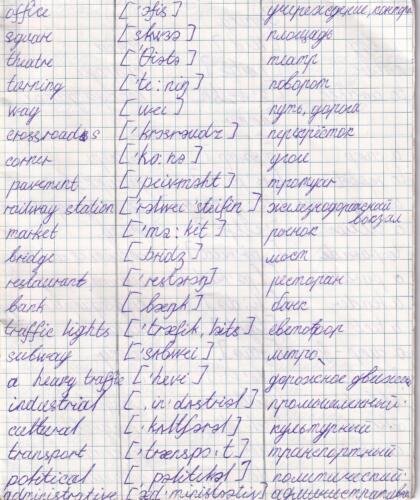 office ['ɔfis] учреждение, контора
square [skwɛə] площадь
theatre ['θiətə] театр
turning ['tɜ:niŋ] поворот
way [wei] путь, дорога
crossroads ['krɔsrəudz] перекрёсток
corner ['kɔ:nə] угол
pavement ['peivmənt] тротуар
railway station ['reilwei steiʃn] железнодорожный вокзал
market ['ma:kit] рынок
bridge [bridʒ] мост
restaurant ['restərɔŋ] ресторан
bank [bæŋk] банк
traffic lights ['træfik, laits] светофор
subway ['sʌbwei] метро
a heavy traffic ['hevi] дорожное движение
industrial [in'dʌstriəl] промышленный
cultural ['kʌltʃərəl] культурный
transport ['trænspɔ:t] транспортный
political [pəlitikəl] политический
administrative [əd'ministrətiv] административный